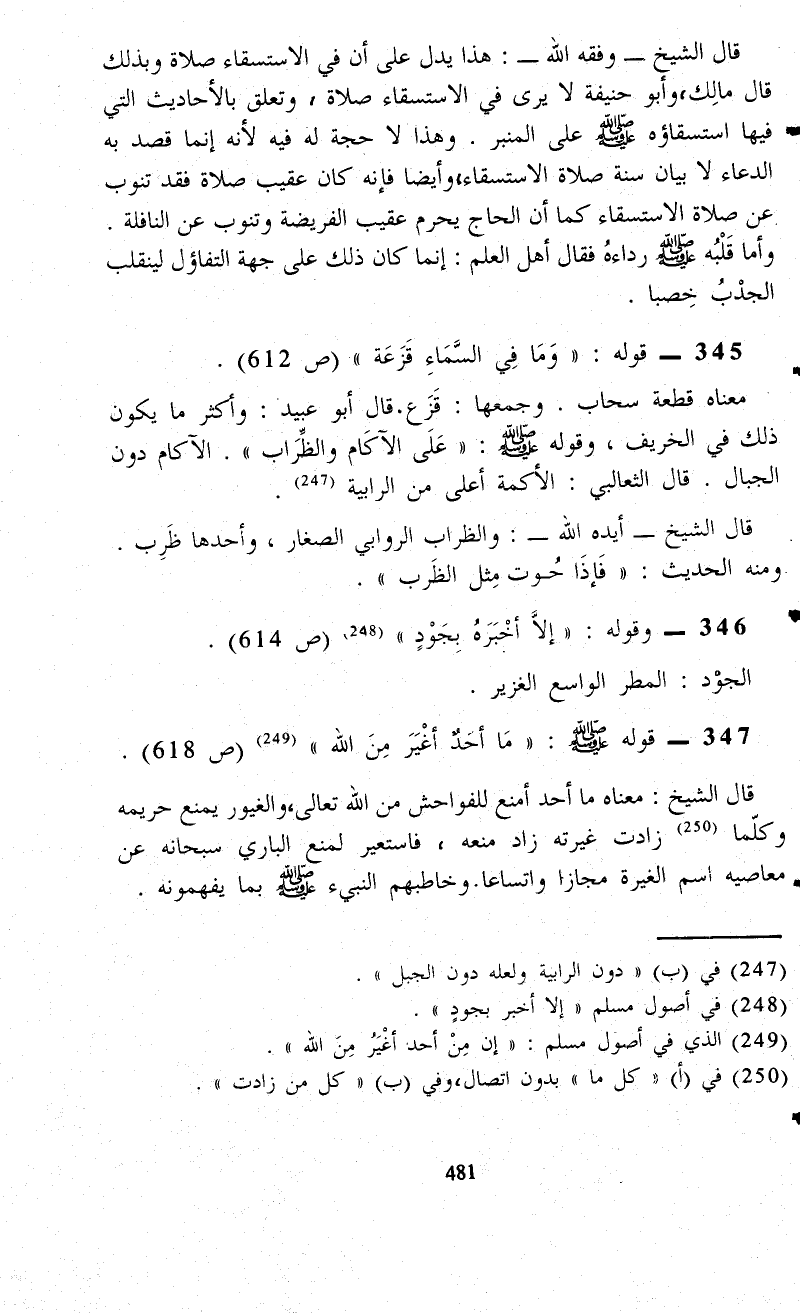 قال الشيخ ــ وفقه الله ــ : هذا يدل على أن في الاستسقاء صلاة وبذلك
قال مالِك،وأبو حنيفة لا يرى في الاستسقاء صلاة ، وتعلق بالأحاديث التي
فيها استسقاؤه ﷺ على المنبر . وهذا لا حجة له فيه لأنه إنما قصد به
الدعاء لا بيان سنة صلاة الاستسقاء،وأيضا فإنه كان عقيب صلاة فقد تنوب
عن صلاة الاستسقاء كما أن الحاج يحرم عقيب الفريضة وتنوب عن النافلة .
وأما قَلْبُه ﷺ رداءهُ فقال أهل العلم : إنما كان ذلك على جهة التفاؤل لينقلب
الجدْبُ خِصبا .
345 ــ قوله : « وَمَا فِي السَّمَاءِ قَزَعَة » (ص 612) .
معناه قطعة سحاب . وجمعها : قَزَع.قال أبو عبيد : وأكثر ما يكون
ذلك في الخريف ، وقوله ﷺ : « عَلَى الآكَام والظِّرَاب » . الآكام دون
الجبال . قال الثعالبي : الأكمة أعلى من الرابية (247) .
قال الشيخ ــ أيده الله ــ : والظراب الروابي الصغار ، وأحدها ظَرِب .
ومنه الحديث : « فَإذَا حُـوت مِثل الظَرب » .
346 ــ وقوله : « إلاَّ أخْبَرَهُ بِجَوْدٍ » (248) (ص 614) .
الجوْد : المطر الواسع الغزير .
347 ــ قوله ﷺ : « مَا أحَدٌ أغْيَرَ مِنَ الله » (249) (ص 618) .
قال الشيخ : معناه ما أحد أمنع للفواحش من الله تعالى،والغيور يمنع حريمه
وكلّما (250) زادت غيرته زاد منعه ، فاستعير لمنع الباري سبحانه عن
معاصيه اسم الغيرة مجازا واتساعا.وخاطبهم النبيء ﷺ بما يفهمونه .
(247) في (ب) « دون الرابية ولعله دون الجبل » .
(248) في أصول مسلم « إلا أخبر بجودٍ » .
(249) الذي في أصول مسلم : « إن مِنْ أحد أغْيَرُ مِنَ الله » .
(250) في (أ) « كل ما » بدون اتصال،وفي (ب) « كل من زادت » .
481